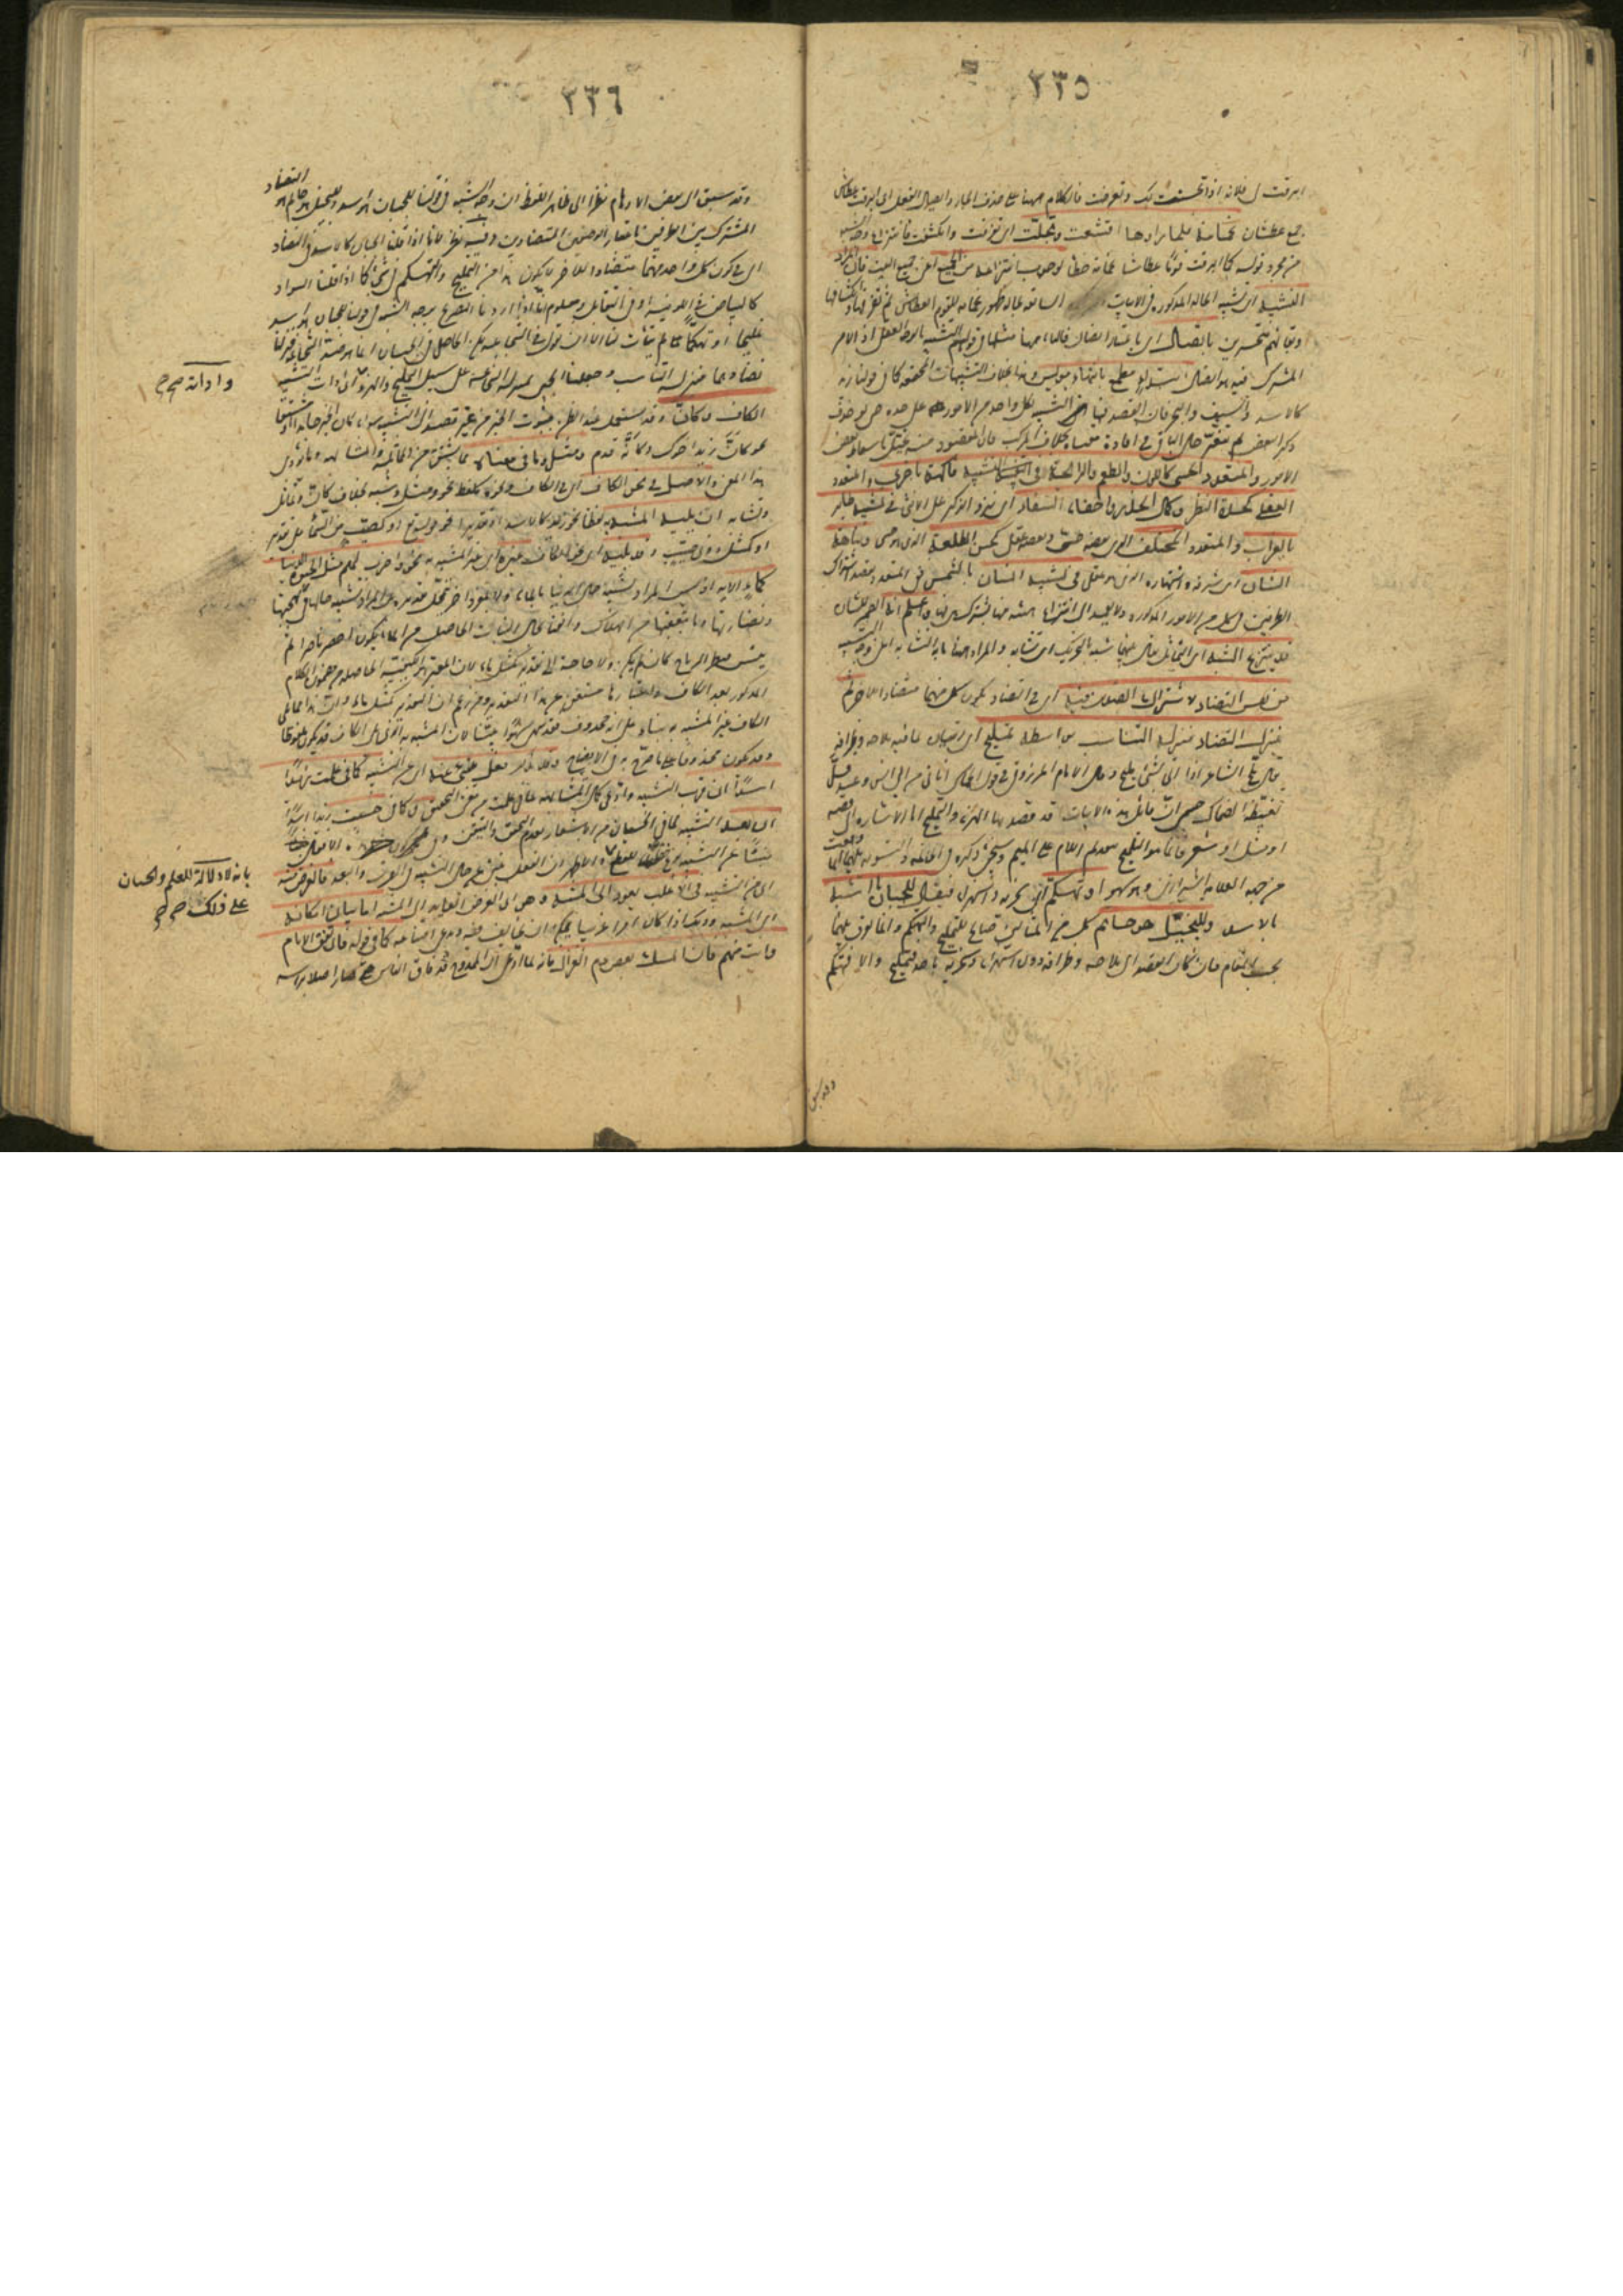 ٢٣٥
ابرقت لى فلانة اذا تحسنت لك وتعرضت فالكلام ههنا على حذف الجار وايصال الفعل اى ابرقت لقوم عطاش
جمع عطشان غمامة فلما رأوها اقشعت وتجلت اى تفرقت وانكشفت فانتزاع وجه الشبه
من مجرد قوله كما ابرقت قوما عطاشا غمامة خطأ لوجوب انتزاعه من الجميع اعنى جميع البيت فان المراد
التشبيه اى تشبيه الحالة المذكورة فى الابيات السابقة بحالة ظهور غمامة للقوم العطاش ثم تفرقها وانكشافها
وبقائهم متحيرين باتصال اى باعتبار اتصال فالباء ههنا مثلها فى قولهم التشبيه بالوجه العقلى اذ الامر
المشترك فيه هو اتصال ابتداء مطمع بانتهاء مؤيس وهذا بخلاف التشبيهات المجتمعة كما فى قولنا زيد
كالاسد والسيف والبحر فان القصد فيها الى التشبيه بكل واحد من الامور على حدة حتى لو حذف
ذكر البعض لم يتغير حال الباقى فى افادة معناه بخلاف المركب فان المقصود منه يختل باسقاط بعض
الامور والمتعدد الحسى كاللون والطعم والرائحة فى تشبيه فاكهة باخرى والمتعدد
العقلى كحدة النظر وكمال الحذر واخفاء السفاد اى نزو الذكر على الانثى فى تشبيه طائر
بالغراب والمتعدد المختلف الذى بعضه حسى وبعضه عقلى كحسن الطلعة الذى هو حسى ونباهة
الشان اى شرفه واشتهاره الذى هو عقلى فى تشبيه انسان بالشمس ففى المتعدد يقصد اشتراك
الطرفين فى كل من الامور المذكورة ولا يعمد الى انتزاع هيئة منها تشترك هى فيها واعلم انه الضمير للشان
قد ينتزع الشبه اى التماثل يقال بينهما شبه بالتحريك اى تشابه والمراد ههنا ما به التشابه اعنى وجه التشبيه
من نفس التضاد لاشتراك الضدين فيه اى فى التضاد لكون كل منهما مضادا للآخر ثم
ينزل التضاد منزلة التناسب بواسطة تمليح اى اتيان بما فيه ملاحة وظرافة
يقال ملح الشاعر اذا اتى بشئ مليح وقال الامام المرزوقى فى قول الحماسى اتانى من ابى انس وعيد فسل
تغيظة الضحاك جسمى ان قائل هذه الابيات قد قصد بها الهزؤ والتمليح اما الاشارة الى قصة
او مثل او شعر فانما هو التلميح بتقديم اللام على الميم وسيجئ ذكره فى الخاتمة والتسوية بينهما انما وقعت
من جهة العلامة الشيرازى وهو سهو او تهكم اى سخرية واستهزاء فيقال للجبان ما اشبهه
بالاسد وللبخيل هو حاتم كل من المثالين صالح للتمليح والتهكم وانما يفرق بينهما
بحسب المقام فان كان القصد الى ملاحة وظرافة دون استهزاء وسخرية باحد فتمليح والا فتهكم
وقد سبق
٢٣٦
وقد سبق الى بعض الاوهام نظرا الى ظاهر اللفظ ان وجه الشبه فى قولنا للجبان هو اسد وللبخيل هو حاتم هو التضاد
المشترك بين الطرفين باعتبار الوصفين المتضادين وفيه نظر لانا اذا قلنا الجبان كالاسد فى التضاد
اى فى كون كل واحد منهما متضادا للآخر لا يكون هذا من التمليح والتهكم فى شئ كما اذا قلنا السواد
كالبياض فى اللونية او فى التقابل ومعلوم انا اذا اردنا التصريح بوجه الشبه فى قولنا للجبان هو اسد
تمليحا او تهكما لم يتأت لنا الا ان نقول فى الشجاعة لكن الحاصل فى الجبان انما هو ضد الشجاعة فنزلنا
تضادهما منزلة التناسب وجعلنا الجبن بمنزلة الشجاعة على سبيل التمليح والهزؤ اى ادوات التشبيه
الكاف وكان وقد يستعمل عند الظن بثبوت الخبر من غير قصد الى التشبيه سواء كان الخبر جامدا او مشتقا
نحو كان زيدا اخوك وكأنه قدم ومثل وما فى معناه مما يشتق من المماثلة والمشابهة وما يؤدى
هذا المعنى والاصل فى نحو الكاف اى فى الكاف ونحوه كلفظ نحو ومثل وشبه بخلاف كان وتماثل
وتشابه ان يليه المشبه به لفظا نحو زيد كالاسد او تقديرا نحو قوله تع او كصيب من السماء على تقدير
او كمثل ذوى صيب وقد يليه اى نحو الكاف غيره اى غير المشبه به نحو واضرب لهم مثل الحيوة الدنيا
كماء الآية اذ ليس المراد تشبيه حال الدنيا بالماء ولا بمفرد آخر يتمحل تقديره بل المراد تشبيه حالها فى بهجتها
ونضارتها وما يتعقبها من الهلاك والفناء بحال النبات الحاصل من الماء يكون اخضر ناضرا ثم
ييبس فتطيره الرياح كان لم يكن ولا حاجة الى تقدير كمثل ماء لان المعتبر هو الكيفية الحاصلة من مضمون الكلام
المذكور بعد الكاف واعتبارها مستغن عن هذا التقدير ومن زعم ان التقدير كمثل ماء وان هذا مما يلى
الكاف غير المشبه به بناء على انه محذوف فقد سها سهوا بينا لان المشبه به الذى يلى الكاف قد يكون ملفوظا
وقد يكون محذوفا على ما صرح به فى الايضاح وقد يذكر فعل ينبئ عنه اى عن التشبيه كما فى علمت زيدا
اسدا ان قرب التشبيه وادعى كمال المشابهة لما فى علمت من معنى التحقيق وكما فى حسبت زيدا اسدا
ان بعد التشبيه لما فى الحسبان من الاشعار بعدم التحقق والتيقن وفى كون
والاظهر ان الفعل ينبئ عن حال التشبيه فى القرب والبعد والغرض منه
اى من التشبيه فى الاغلب يعود الى المشبه وهو اى الغرض العائد الى المشبه اما بيان امكانه
اى المشبه وذلك اذا كان امرا غريبا يمكن ان يخالف فيه ويدعى امتناعه كما فى قوله فان تفق الانام
وانت منهم فان المسك بعض دم الغزال فانه لما ادعى ان الممدوح قد فاق الناس حتى صار اصلا برأسه
واداته صح
بانه لا دلالة للعلم والحسبان
على ذلك صح